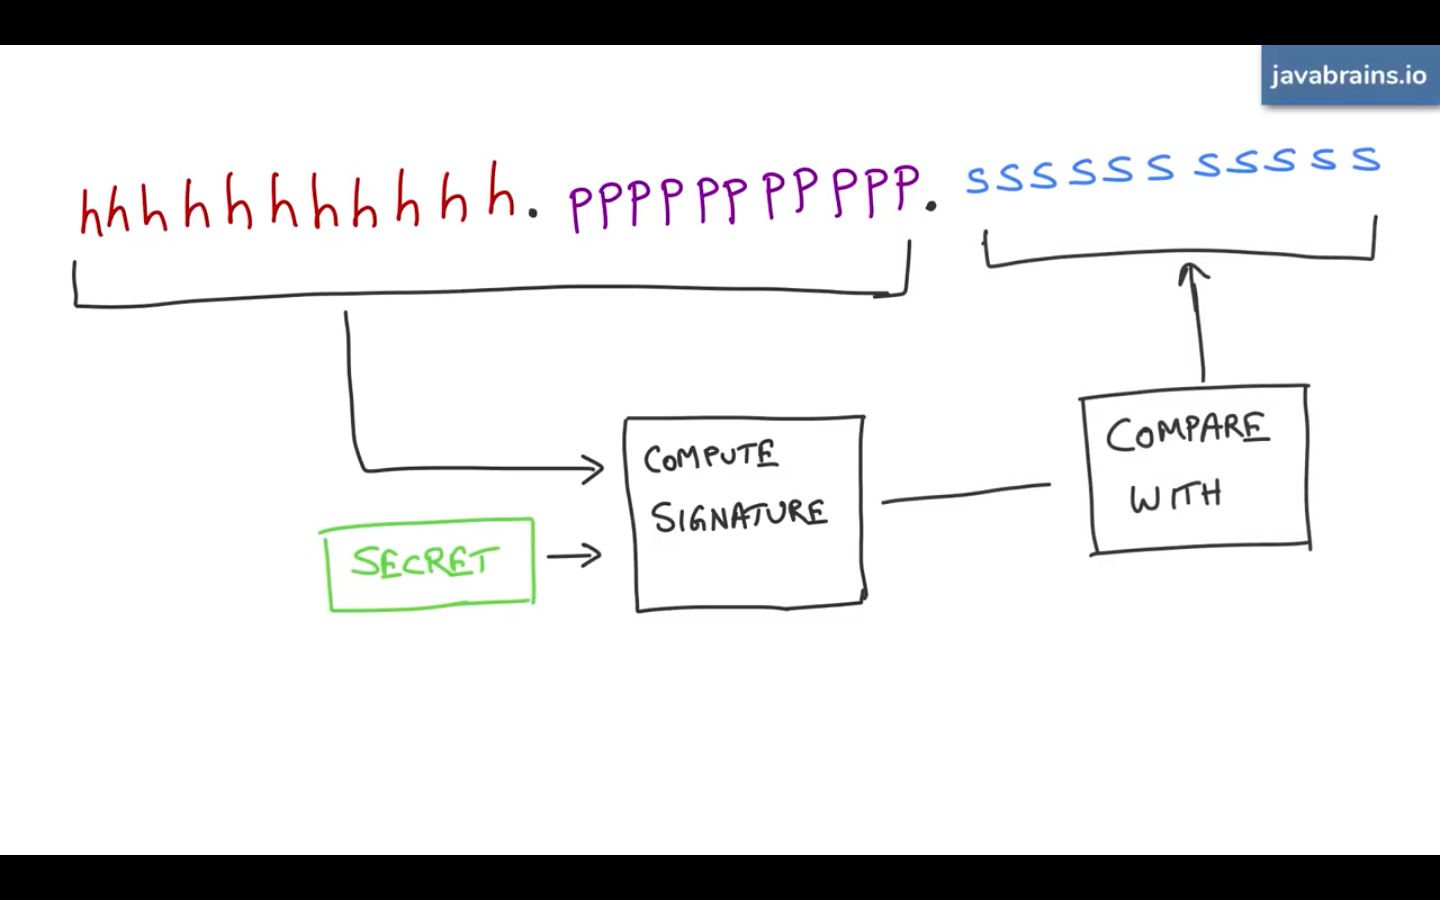 javabrains.io
hhhhhhhhhhh.ppppppppppp.sssssssssss
COMPUTE
SIGNATURE
SECRET
COMPARE
WITH